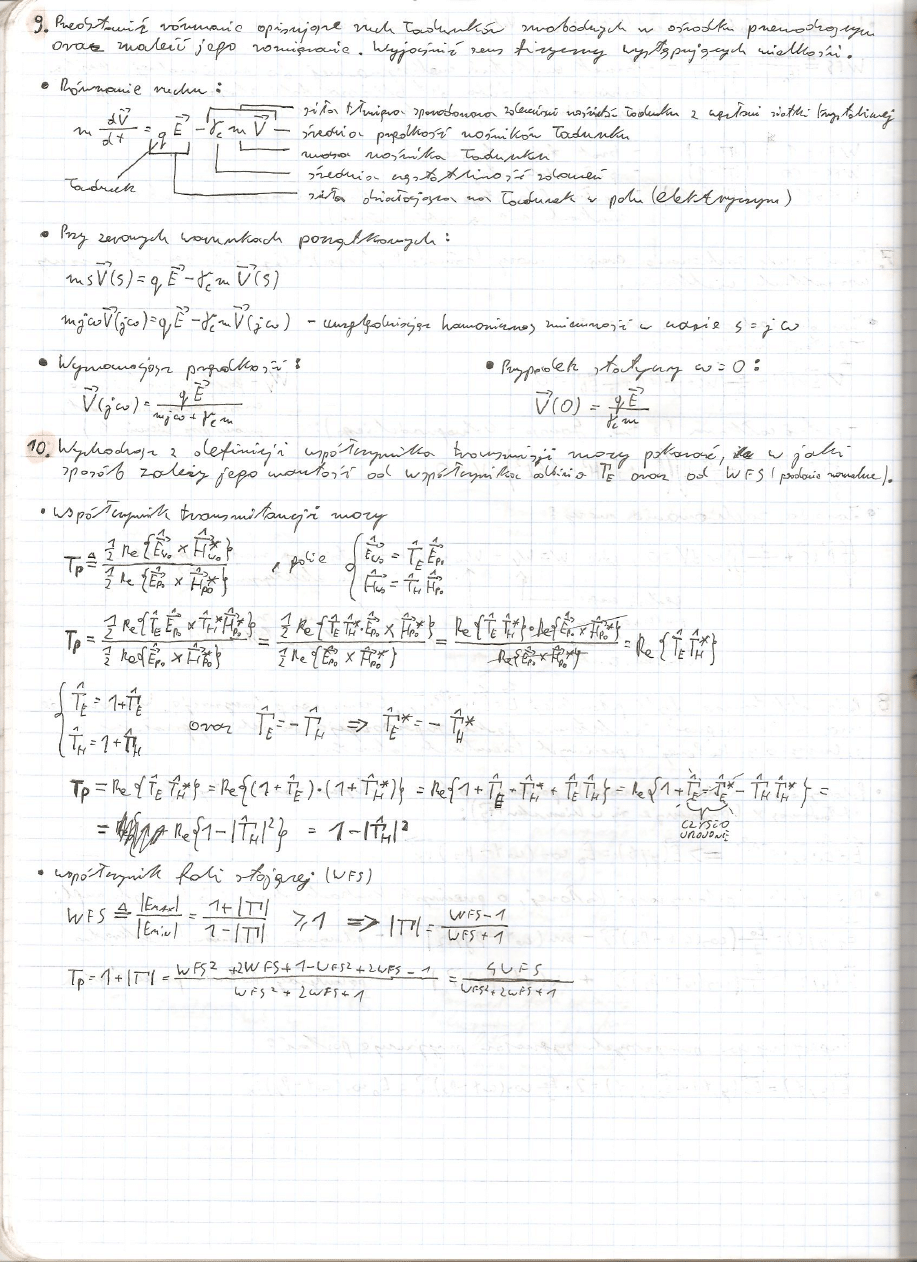 9. Przedstawić równanie opisujące ruch ładunków swobodnych w ośrodku przewodzącym
oraz znaleźć jego rozwiązanie. Wyjaśnić sens fizyczny występujących wielkości.
• Równanie ruchu:
m dV⃗/dt = q E⃗ - γc m V⃗
siła tłumiąca spowodowana zderzeniami nośników ładunku z węzłami siatki krystalicznej
średnia prędkość nośników ładunku
masa nośnika ładunku
średnia częstotliwość zderzeń
ładunek
siła działająca na ładunek w polu (elektrycznym)
• Przy zerowych warunkach początkowych:
msV⃗(s) = qE⃗ - γc m V⃗(s)
mjωV⃗(jω) = qE⃗ - γc m V⃗(jω) - uwzględniając harmoniczną zmienność w czasie s = jω
• Wyznaczając prędkość:
V⃗(jω) = qE⃗ / (mjω + γc m)
• Przypadek statyczny ω = 0:
V⃗(0) = qE⃗ / (γc m)
10. Wychodząc z definicji współczynnika transmisji mocy pokazać, w jaki
sposób zależy jego wartość od współczynnika odbicia Γ_E oraz od WFS (padanie normalne).
• współczynnik transmitancji mocy
Tp ≜ ½ Re{Ê⃗wo × Ĥ⃗wo*} / ½ Re{Ê⃗po × Ĥ⃗po*} , gdzie { Ê⃗wo = T̂_E Ê⃗po
Ĥ⃗wo = T̂_H Ĥ⃗po
Tp = ½ Re{T̂_E Ê⃗po × T̂_H* Ĥ⃗po*} / ½ Re{Ê⃗po × Ĥ⃗po*} = ½ Re{T̂_E T̂_H* · Ê⃗po × Ĥ⃗po*} / ½ Re{Ê⃗po × Ĥ⃗po*} = Re{T̂_E T̂_H*} · Re{Ê⃗po × Ĥ⃗po*} / Re{Ê⃗po × Ĥ⃗po*} = Re{T̂_E T̂_H*}
{ T̂_E = 1 + Γ̂_E
T̂_H = 1 + Γ̂_H
oraz Γ̂_E = -Γ̂_H ⇒ Γ̂_E* = -Γ̂_H*
Tp = Re{T̂_E T̂_H*} = Re{(1 + Γ̂_E)·(1 + Γ̂_H*)} = Re{1 + Γ̂_E + Γ̂_H* + Γ̂_E Γ̂_H} = Re{1 + Γ̂_E - Γ̂_E* - Γ̂_H Γ̂_H*} =
CZYSTO
UROJONE
= Re{1 - |Γ̂_H|²} = 1 - |Γ̂_H|²
• współczynnik fali stojącej (WFS)
WFS ≜ |Emax| / |Emin| = (1 + |Γ|) / (1 - |Γ|) ≥ 1 ⇒ |Γ| = (WFS - 1) / (WFS + 1)
Tp = 1 + |Γ| = (WFS² + 2WFS + 1 - WFS² + 2WFS - 1) / (WFS² + 2WFS + 1) = 4WFS / (WFS² + 2WFS + 1)